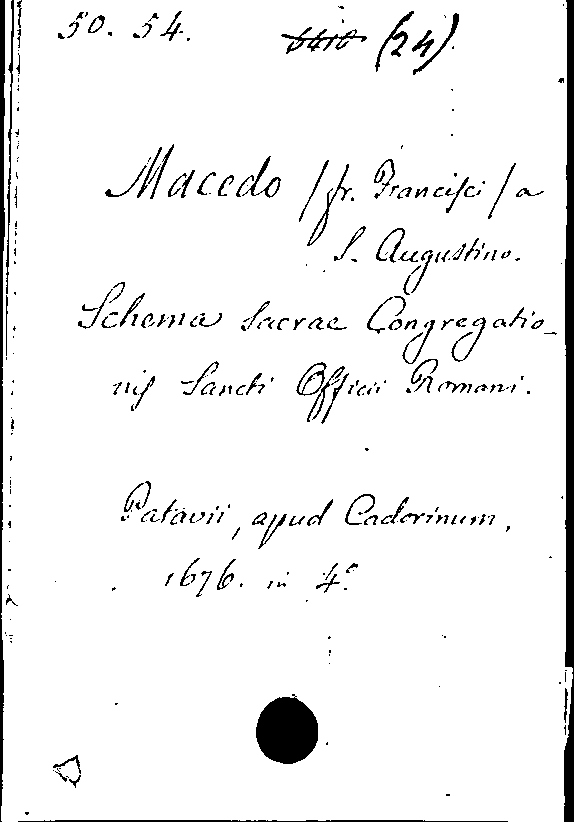 50. 54. (24).
Macedo /fr. Francisci/ a
S. Augustino.
Schema sacrae Congregatio-
nis Sancti Officii Romani.
Patavii, apud Cadorinum,
1676. in 4°.